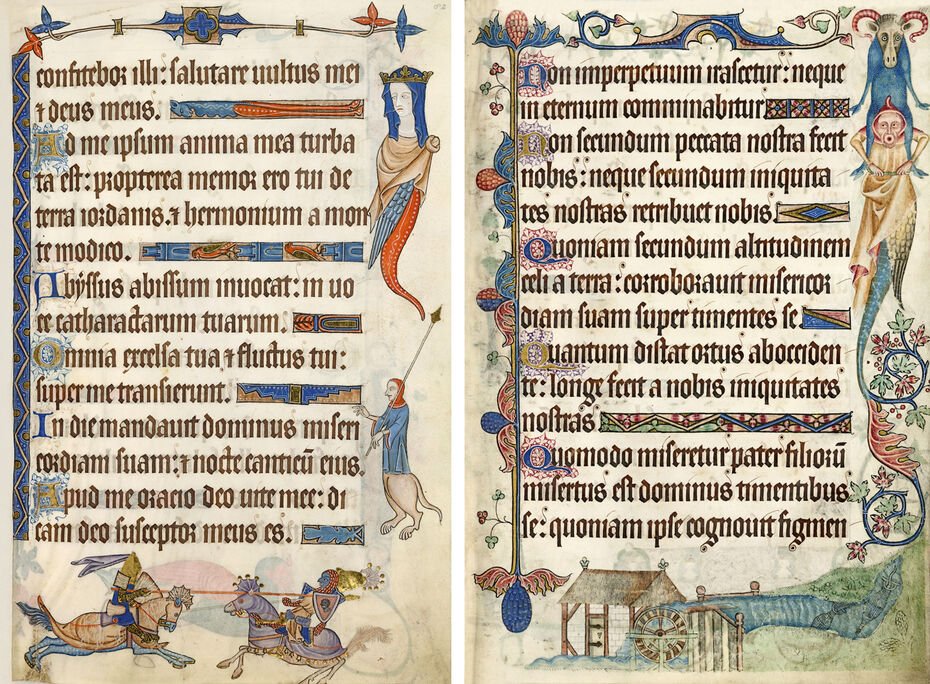 confitebor illi: salutare uultus mei
⁊ deus meus.
Ad me ipsum anima mea turba
ta est: propterea memor ero tui de
terra iordanis. ⁊ hermonium a mon
te modico.
Abyssus abissum inuocat: in uo
ce catharactarum tuarum.
Omnia excelsa tua ⁊ fluctus tui:
super me transierunt.
In die mandauit dominus miseri
cordiam suam: ⁊ nocte canticū eius.
Apud me oracio deo uite mee: di
cam deo susceptor meus es.
Non imperpetuum irascetur: neque
in eternum comminabitur
Non secundum peccata nostra fecit
nobis: neque secundum iniquita
tes nostras retribuet nobis.
Quoniam secundum altitudinem
celi a terra: corroborauit misericor
diam suam super timentes se.
Quantum distat ortus ab occiden
te: longe fecit a nobis iniquitates
nostras
Quomodo miseretur pater filiorū
misertus est dominus timentibus
se: quoniam ipse cognouit figmen